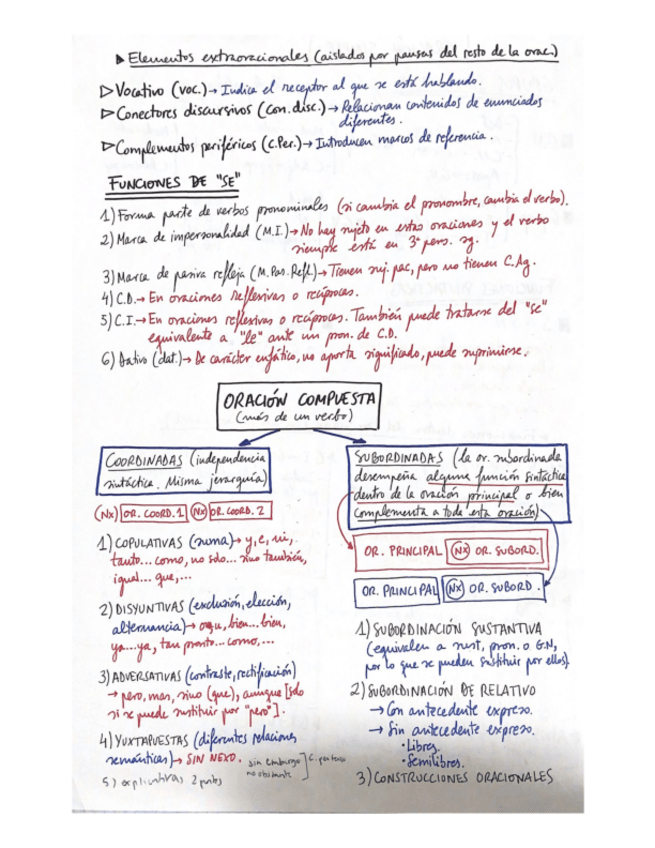 ▶ Elementos extraoracionales (aislados por pausas del resto de la orac.)
▷ Vocativo (voc.) → Indica el receptor al que se está hablando.
▷ Conectores discursivos (Con. disc.) → Relacionan contenidos de enunciados
diferentes.
▷ Complementos periféricos (C.Per.) → Introducen marcos de referencia.
FUNCIONES DE "SE"
1) Forma parte de verbos pronominales (si cambia el pronombre, cambia el verbo).
2) Marca de impersonalidad (M.I.) → No hay sujeto en estas oraciones y el verbo
siempre está en 3ª pers. sg.
3) Marca de pasiva refleja (M. Pas. Refl.) → Tienen suj. pac, pero no tienen C.Ag.
4) C.D. → En oraciones reflexivas o recíprocas.
5) C.I. → En oraciones reflexivas o recíprocas. También puede tratarse del "se"
equivalente a "le" ante un pron. de C.D.
6) Dativo (dat.) → De carácter enfático, no aporta significado, puede suprimirse.
ORACIÓN COMPUESTA
(más de un verbo)
COORDINADAS (independencia
sintáctica. Misma jerarquía)
(NX) OR. COORD. 1 (NX) OR. COORD. 2
1) COPULATIVAS (suma) → y, e, ni,
tanto... como, no solo... sino también,
igual... que,...
2) DISYUNTIVAS (exclusión, elección,
alternancia) → o, u, bien... bien,
ya...ya, tan pronto... como,...
3) ADVERSATIVAS (contraste, rectificación)
→ pero, mas, sino (que), aunque [solo
si se puede sustituir por "pero"].
4) YUXTAPUESTAS (diferentes relaciones
semánticas) → SIN NEXO. sin embargo
no obstante
5) explicativas 2 puntos
SUBORDINADAS (la or. subordinada
desempeña alguna función sintáctica
dentro de la oración principal o bien
complementa a toda esta oración)
OR. PRINCIPAL (NX) OR. SUBORD.
OR. PRINCIPAL (NX) OR. SUBORD.
1) SUBORDINACIÓN SUSTANTIVA
(equivalen a sust, pron. o G.N,
por lo que se pueden sustituir por ellos).
2) SUBORDINACIÓN DE RELATIVO
→ Con antecedente expreso.
→ Sin antecedente expreso.
• Libres.
• Semilibres.
3) CONSTRUCCIONES ORACIONALES